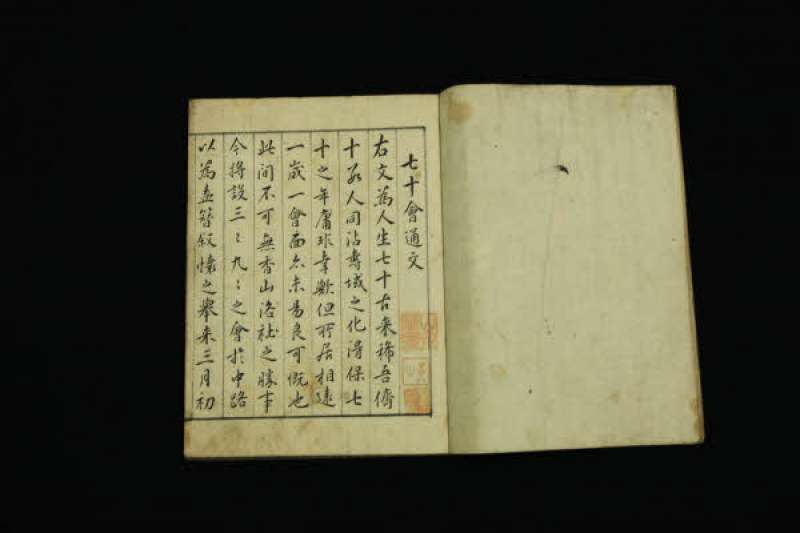 七十會通文
右文爲人生七十古來稀吾儕
十教人同沾壽域之化得保七
十之年庸非幸歟但所居相遠
一歲一會面亦未易良可慨也
此間不可無香山洛社之勝事
今將設三三九九之會於中路
以爲盍簪敍懷之擧來三月初